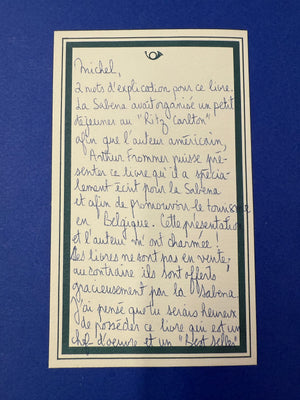 Michel,
2 mots d'explication pour ce livre.
La Sabena avait organisé un petit
déjeuner au "Ritz Carlton"
afin que l'auteur américain,
Arthur Frommer puisse pré-
senter ce livre qu'il a spécia-
lement écrit pour la Sabena
et afin de promouvoir le tourisme
en Belgique. Cette présentation
et l'auteur m'ont charmée!
Ces livres ne sont pas en vente,
au contraire ils sont offerts
gracieusement par la Sabena.
J'ai pensé que tu serais heureux
de posséder ce livre qui est un
chef d'oeuvre et un "Best Seller"